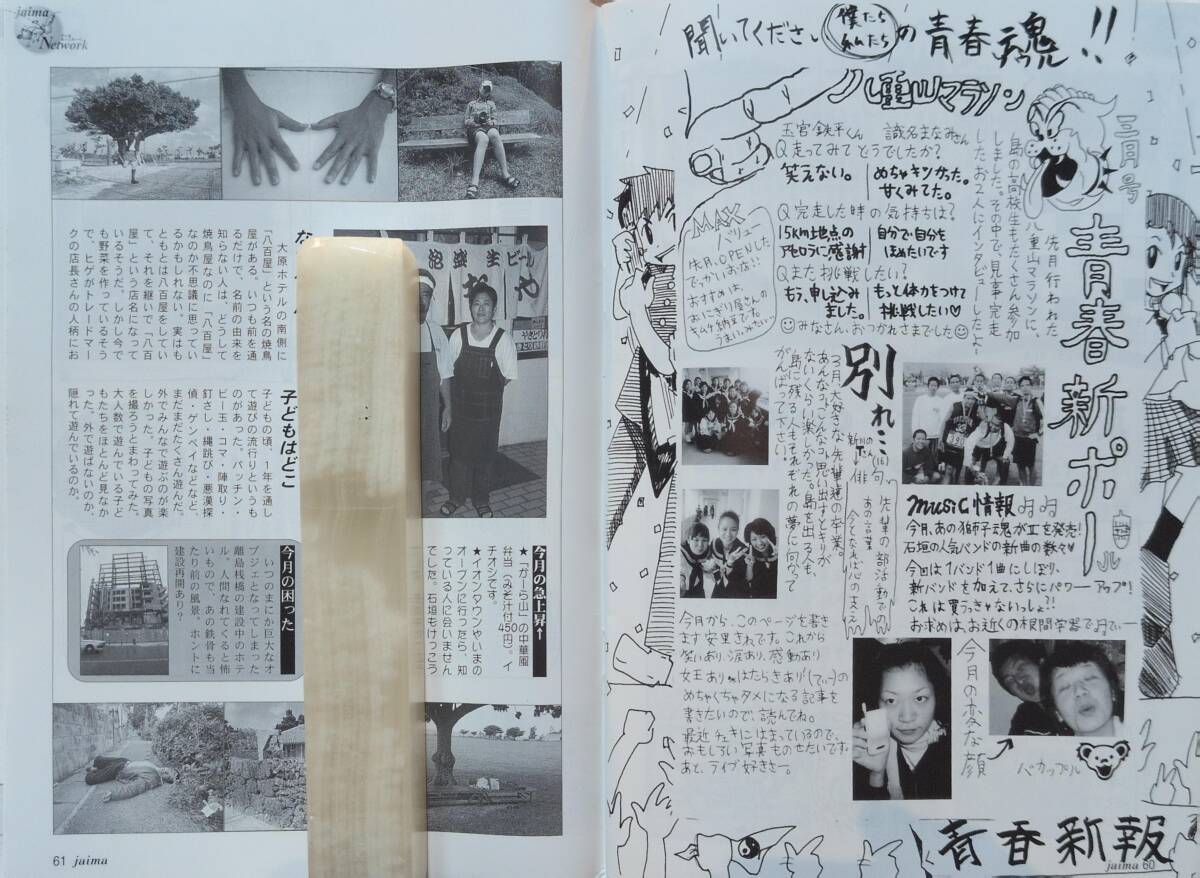 jaima
Network
大原ホテルの南側に
「八百屋」という名の焼鳥
屋がある。いつも前を通
るだけで、名前の由来を
知らない人は、どうして
焼鳥屋なのに「八百屋」
なのか不思議に思ってい
るかもしれない。実はも
ともとは八百屋をしてい
て、それを継いで「八百
屋」という店名になって
いるそうだ。しかし今で
も野菜を作っているそう
で、ヒゲがトレードマー
クの店長さんの人柄にお
泡盛 生ビール
子どもはどこ
子どもの頃、1年を通し
て遊びの流行りというも
のがあった。パッチン・
ビー玉・コマ・陣取り・
釘さし・縄跳び・悪漢探
偵・ゲンペイなどなど、
まだまだたくさん遊んだ。
外でみんなで遊ぶのが楽
しかった。子どもの写真
を撮ろうとまわってみた。
大人数で遊んでいる子ど
もたちをほとんど見なか
った。外で遊ばないのか、
隠れて遊んでいるのか。
今月の急上昇↑
★「かーら山」の中華風
弁当(みそ汁付450円)。イ
チオシです。
★イオンタウンやいまの
オープンに行ったら、知
っている人に会いません
でした。石垣もけっこう
今月の困った
いつのまにか巨大なオ
ブジェとなってしまった
離島桟橋の建設中のホテ
ル。人間なれてくると怖
いもので、あの鉄骨も当
たり前の風景。ホントに
建設再開あり?
61 jaima
聞いてください 僕たち 私たち の青春魂!!
三月号
青春新ポール
八重山マラソン
先月行われた
八重山マラソンに、
島の高校生もたくさん参加
しました。その中で、見事完走
したお2人にインタビューしたよ〜
玉宮鉄平くん 識名まなみさん
Q走ってみてどうでしたか?
笑えない。
めちゃキツかった。
甘くみてた。
Q完走した時の気持ちは?
15km地点の
アセロラに感謝
自分で自分を
ほめたいです
Qまた挑戦したい?
もう、申し込み
ました。
もっと体力をつけて
挑戦したい♡
みなさん、おつかれさまでした
MAX
バリュー
先月、OPENした
でっかいお店!!
おすすめは、
おにぎり屋さんの
キムチ納豆です。
うまい。みたい。
別れ…
3月、大好きな先輩達の卒業。
あんなコト、こんなコト思い出すとキリが
ないくらい楽しかった。島を出る人も、
島に残る人もそれぞれの夢に向かって
がんばって下さい。
俳句
先輩の
部活動で
あの言葉
music情報
今月、あの獅子魂がIIを発売!
石垣の人気バンドの新曲の数々♥
今回は1バンド1曲にしぼり、
新バンドを加えて、さらにパワーアップ!
これは買うっきゃないっしょ?!
お求めは、お近くの根間学習で
今月から、このページを書き
ます安里されです。これから
笑いあり、涙あり、感動あり
めちゃくちゃタメになる記事を
書きたいので、読んでね。
最近チェキにはまっているので、
おもしろい写真ものせたいです。
あと、ライブ好きさー。
今月の変な顔
バカップル
青春新報
jaima 60